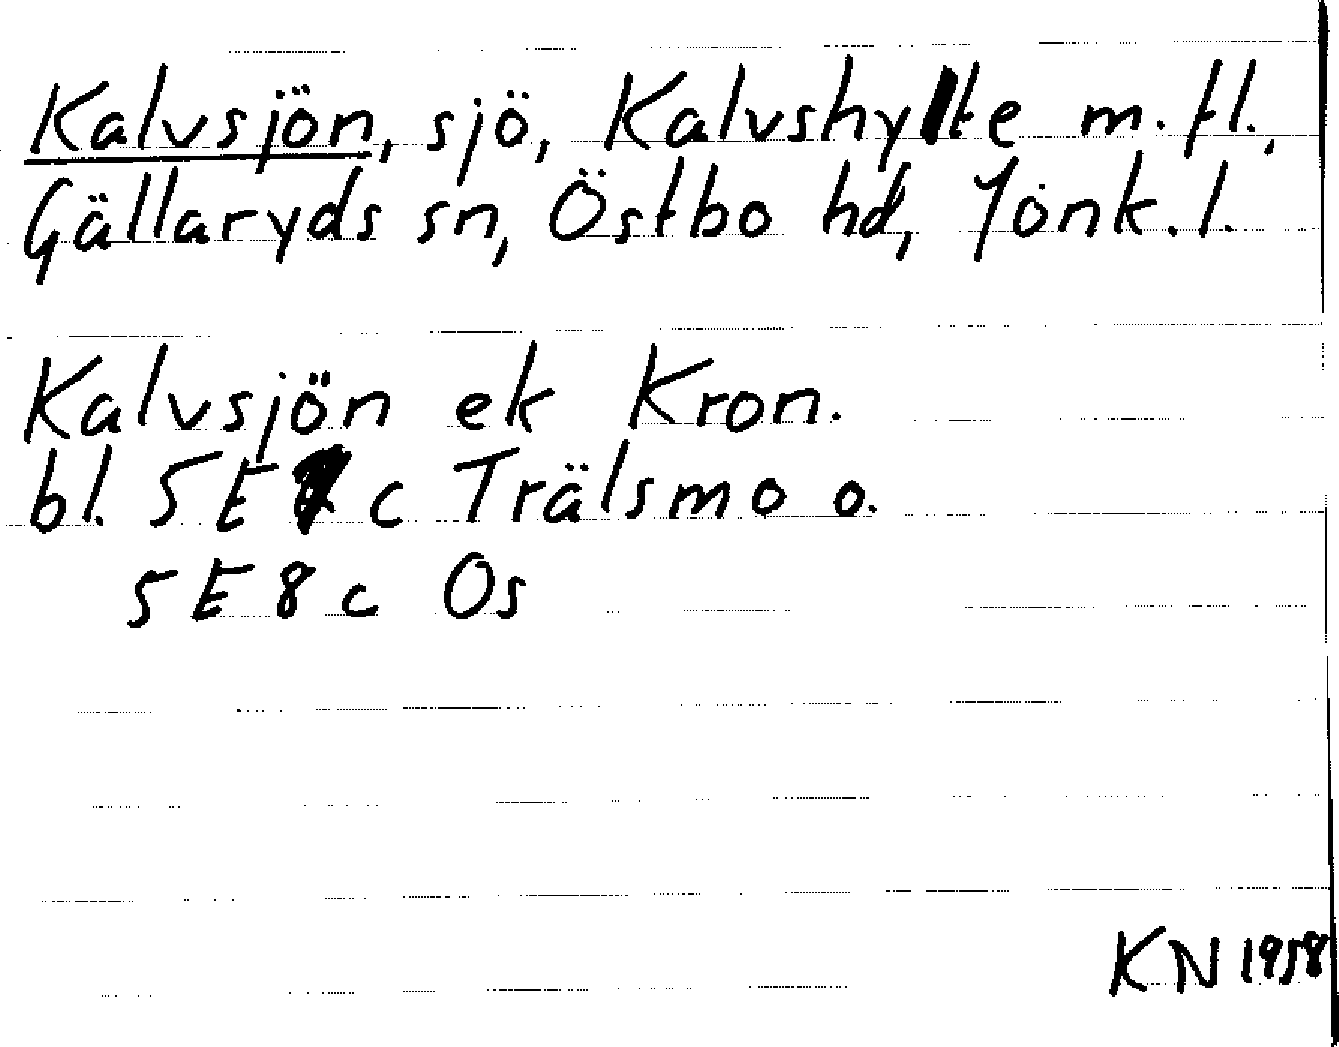 Kalvsjön, sjö, Kalvshylte m. fl.,
Gällaryds sn, Östbo hd, Jönk. l.
Kalvsjön ek Kron.
bl. 5E c Trälsmo o.
5E8c Os
KN 1958